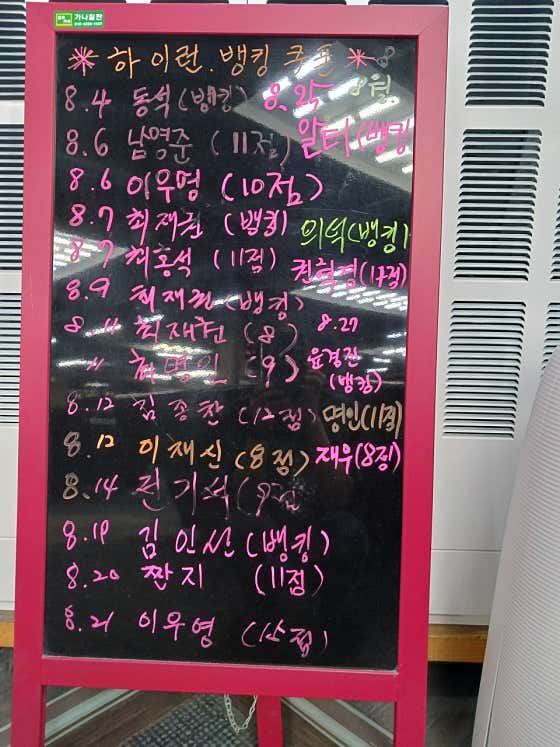 가나칠판
* 하이런.뱅킹 쿠폰 * 8월
8.4 동석(뱅킹) 8.
8.6 남영준 (11점) 알터(뱅킹
8.6 이우영 (10점)
8.7 최재권 (뱅킹) 의덕(뱅킹)
8.7 최홍석 (11점) 권혁경(17점)
8.9 최재권(뱅킹)
8.11 최재권 (8) 8.27
" 명인 (9) 윤경진
(뱅킹)
8.12 김종찬 (12점) 명인(11점)
8.12 이재신(8점) 재우(8점)
8.14 전기석(9점
8.19 김인선(뱅킹)
8.20 짠지 (11점)
8.21 이우영